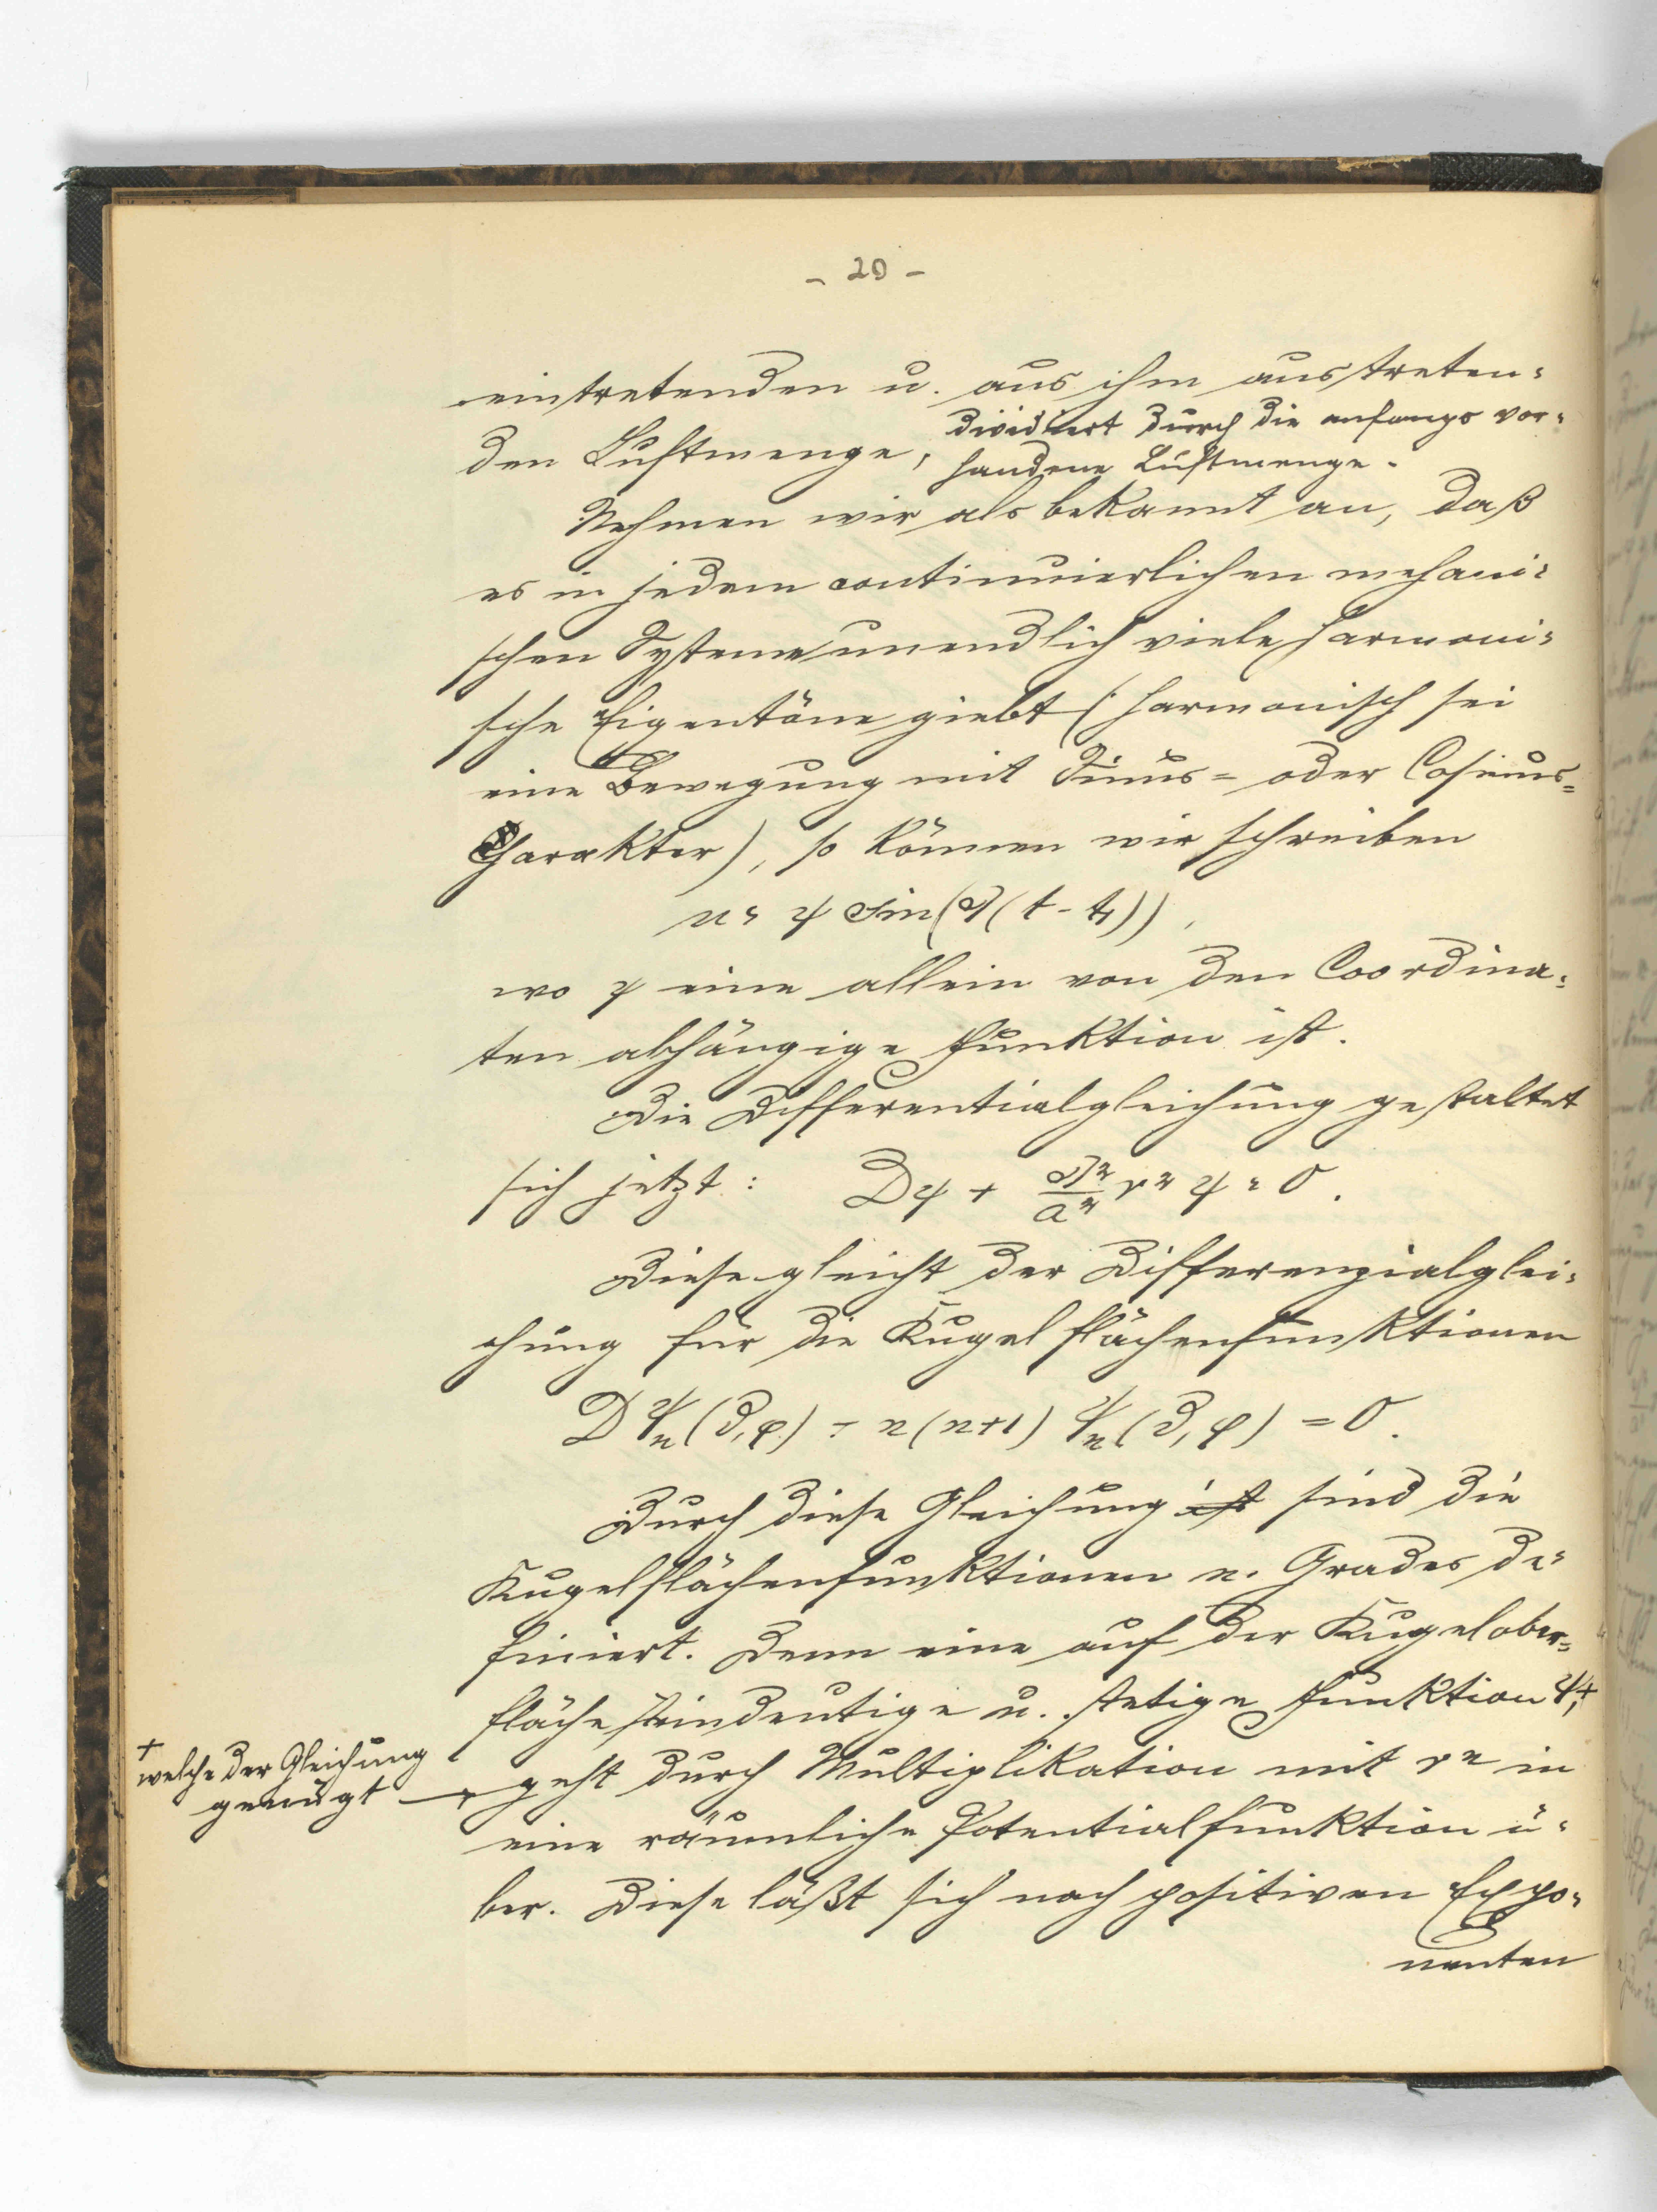 - 20 -
eintretenden u. aus ihm austreten-
den Luftmenge, dividiert durch die anfangs vor-
handene Luftmenge.
Nehmen wir als bekannt an, daß
es in jedem continuierlichen mechani-
schen Systeme unendlich viele harmoni-
sche Eigentöne giebt (harmonisch sei
eine Bewegung mit Sinus- oder Cosinus-
Charakter), so können wir schreiben
u = ψ sin(λ(t - t₁)),
wo ψ eine allein von den Coordina-
ten abhängige Funktion ist.
Die Differentialgleichung gestaltet
sich jetzt: Dψ + λ²/a² r² ψ = 0.
Diese gleicht der Differenzialglei-
chung für die Kugelflächenfunktionen
D Ψₙ(ϑ,φ) + n(n+1) Ψₙ(ϑ,φ) = 0.
Durch diese Gleichung ist sind die
Kugelflächenfunktionen n. Grades de-
finiert. Denn eine auf der Kugelober-
fläche eindeutige u. stetige Funktion Ψ,+
+ welche der Gleichung
genügt
geht durch Multiplikation mit rⁿ in
eine räumliche Potentialfunktion ü-
ber. Diese läßt sich nach positiven Expo-
nenten